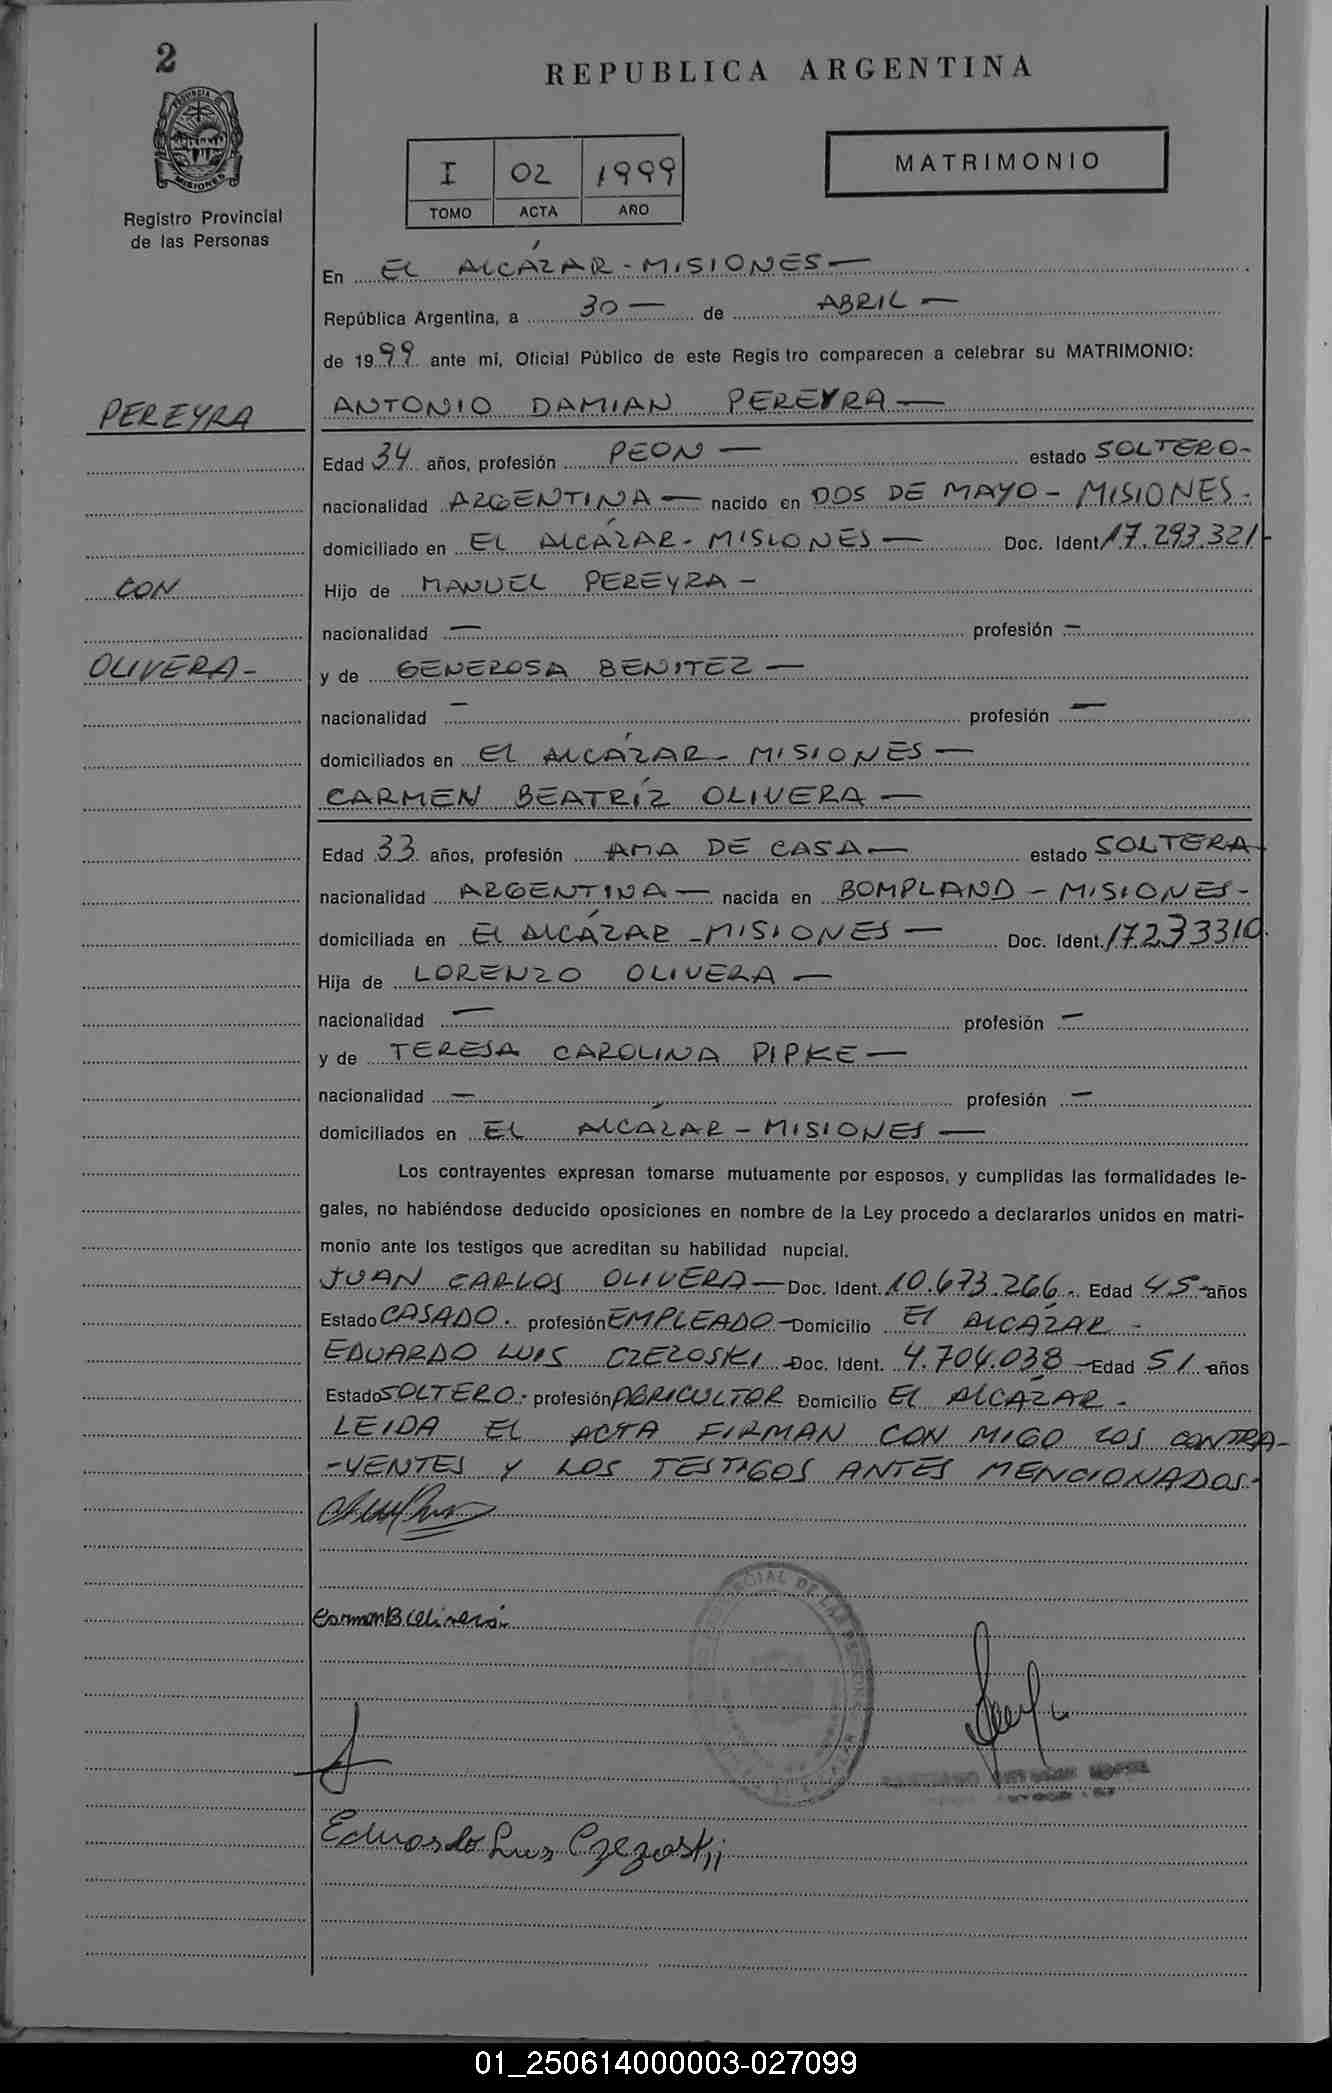 2
REPUBLICA ARGENTINA
PROVINCIA
MISIONES
Registro Provincial
de las Personas
I 02 1999
TOMO ACTA AÑO
MATRIMONIO
En EL ALCÁZAR - MISIONES —
República Argentina, a 30 — de ABRIL —
de 1999 ante mí, Oficial Público de este Regis tro comparecen a celebrar su MATRIMONIO:
PEREYRA
ANTONIO DAMIAN PEREYRA —
Edad 34 años, profesión PEON — estado SOLTERO-
nacionalidad ARGENTINA — nacido en DOS DE MAYO - MISIONES-
domiciliado en EL ALCÁZAR - MISIONES — Doc. Ident. 17.293.321-
CON
Hijo de MANUEL PEREYRA -
nacionalidad — profesión —
OLIVERA-
y de GENEROSA BENITEZ —
nacionalidad — profesión —
domiciliados en El ALCÁZAR - MISIONES —
CARMEN BEATRÍZ OLIVERA —
Edad 33 años, profesión AMA DE CASA — estado SOLTERA-
nacionalidad ARGENTINA — nacida en BOMPLAND - MISIONES-
domiciliada en El ALCÁZAR - MISIONES — Doc. Ident. 17233310.
Hija de LORENZO OLIVERA —
nacionalidad — profesión —
y de TERESA CAROLINA PIPKE —
nacionalidad — profesión —
domiciliados en EL ALCÁZAR - MISIONES —
Los contrayentes expresan tomarse mutuamente por esposos, y cumplidas las formalidades le-
gales, no habiéndose deducido oposiciones en nombre de la Ley procedo a declararlos unidos en matri-
monio ante los testigos que acreditan su habilidad nupcial.
JUAN CARLOS OLIVERA — Doc. Ident. 10.673.266.- Edad 45- años
Estado CASADO. profesión EMPLEADO - Domicilio El ALCÁZAR -
EDUARDO LUIS CZEZOSKI - Doc. Ident. 4.704.038 - Edad 51 años
Estado SOLTERO.- profesión AGRICULTOR Domicilio El ALCÁZAR -
LEIDA EL ACTA FIRMAN CON MIGO LOS CONTRA-
-YENTES Y LOS TESTIGOS ANTES MENCIONADOS-
Carmen B Olivera
Eduardo Luis Czezoskij
01_250614000003-027099